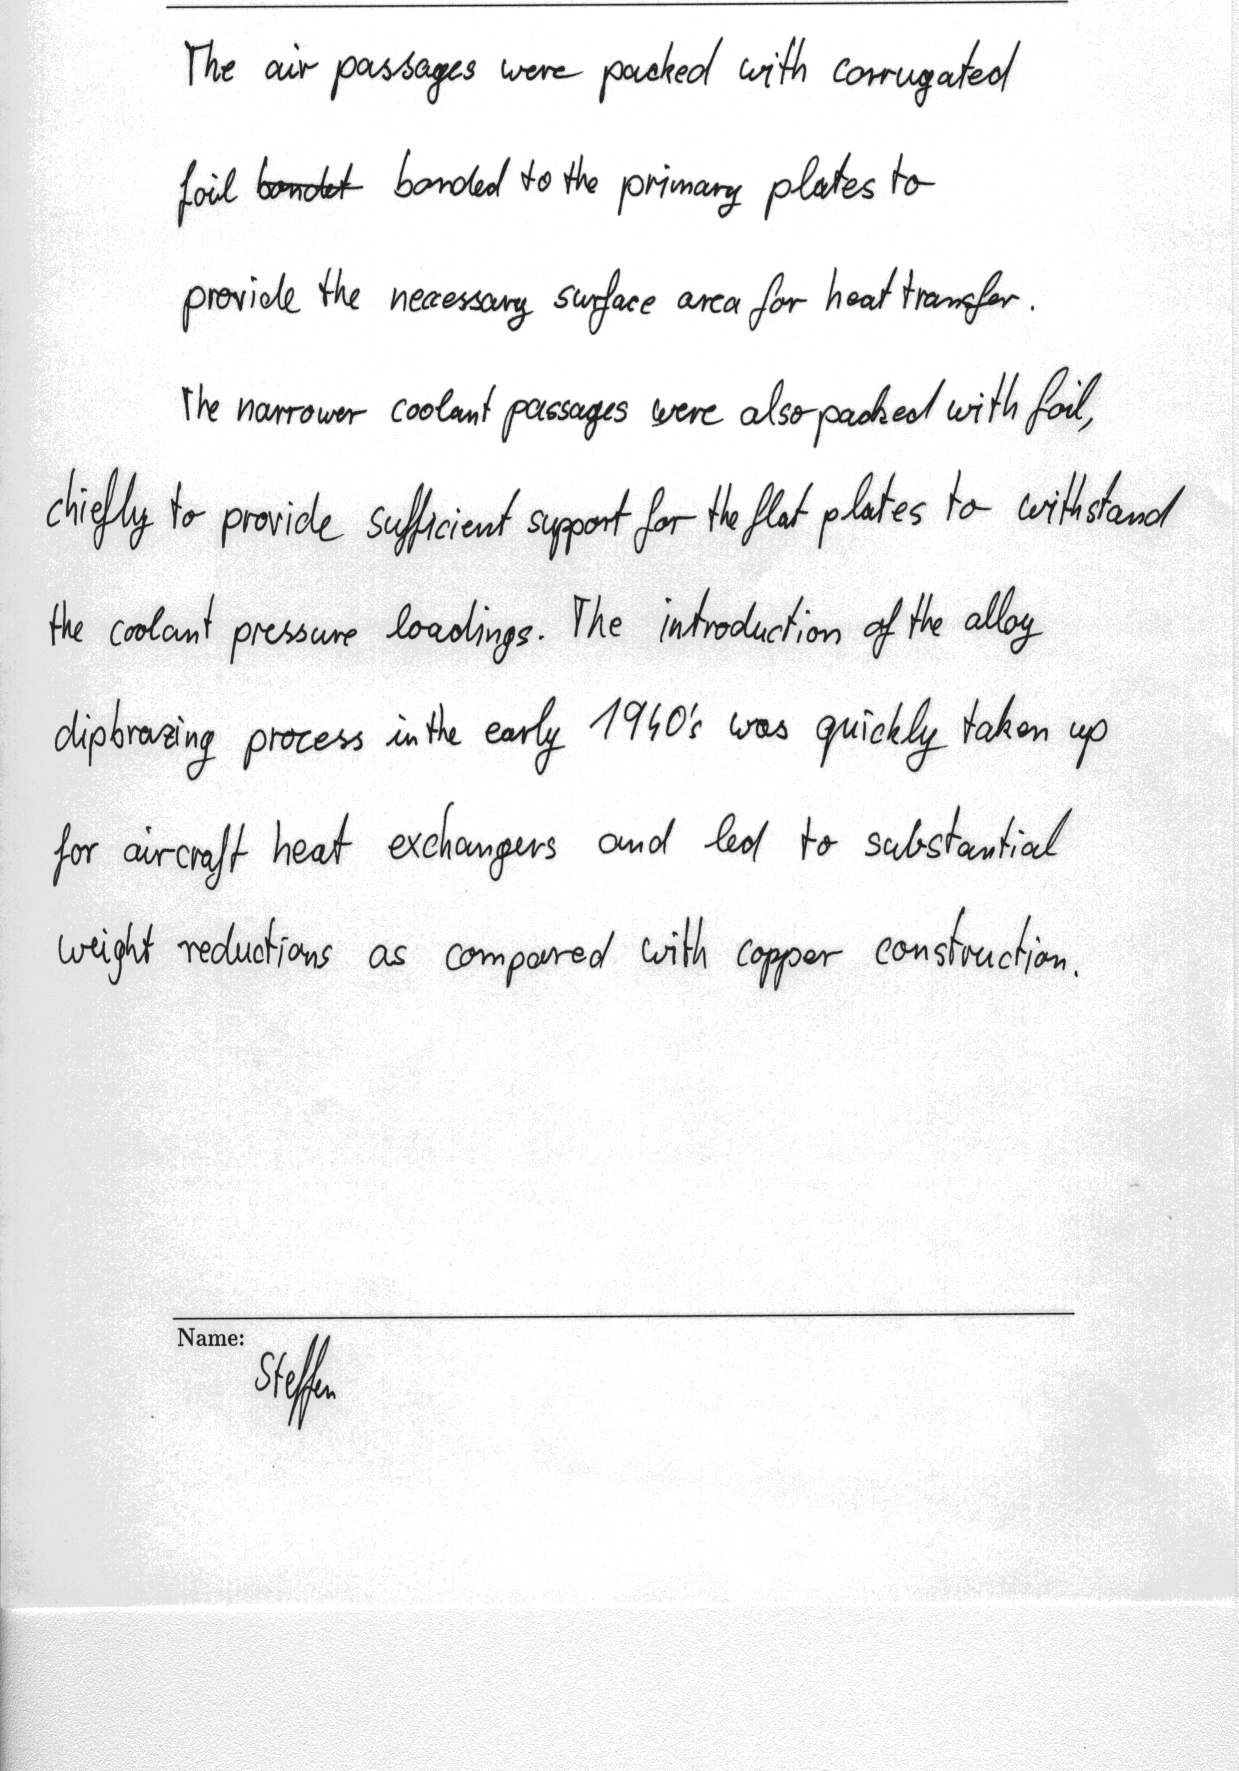 The air passages were packed with corrugated
foil bondet bonded to the primary plates to
provide the necessary surface area for heat transfer.
The narrower coolant passages were also packed with foil,
chiefly to provide sufficient support for the flat plates to withstand
the coolant pressure loadings. The introduction of the alloy
dipbrazing process in the early 1940's was quickly taken up
for aircraft heat exchangers and led to substantial
weight reductions as compared with copper construction.
Name:
Steffen